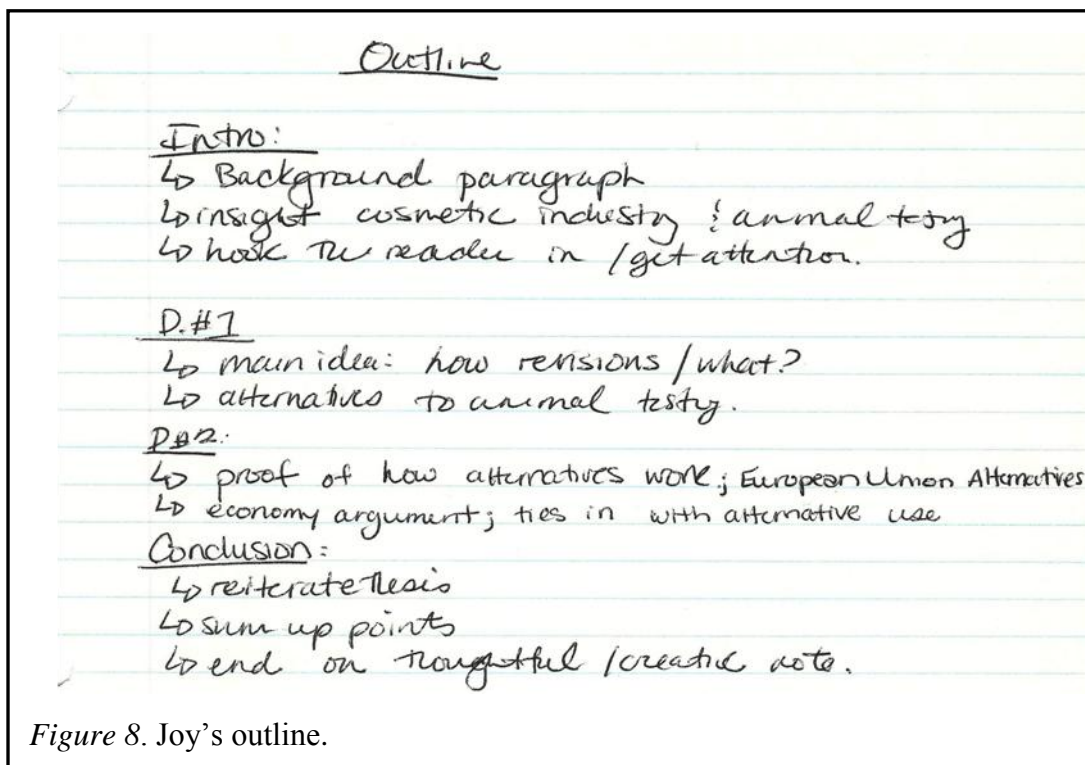 Outline
Intro:
↳ Background paragraph
↳ insight cosmetic industry & animal testing
↳ hook the reader in / get attention.
D.#1
↳ main idea: how revisions / what?
↳ alternatives to animal testing.
D#2:
↳ proof of how alternatives work; European Union Alternatives
↳ economy argument; ties in with alternative use
Conclusion:
↳ reiterate thesis
↳ sum up points
↳ end on thoughtful / creative note.
Figure 8. Joy's outline.